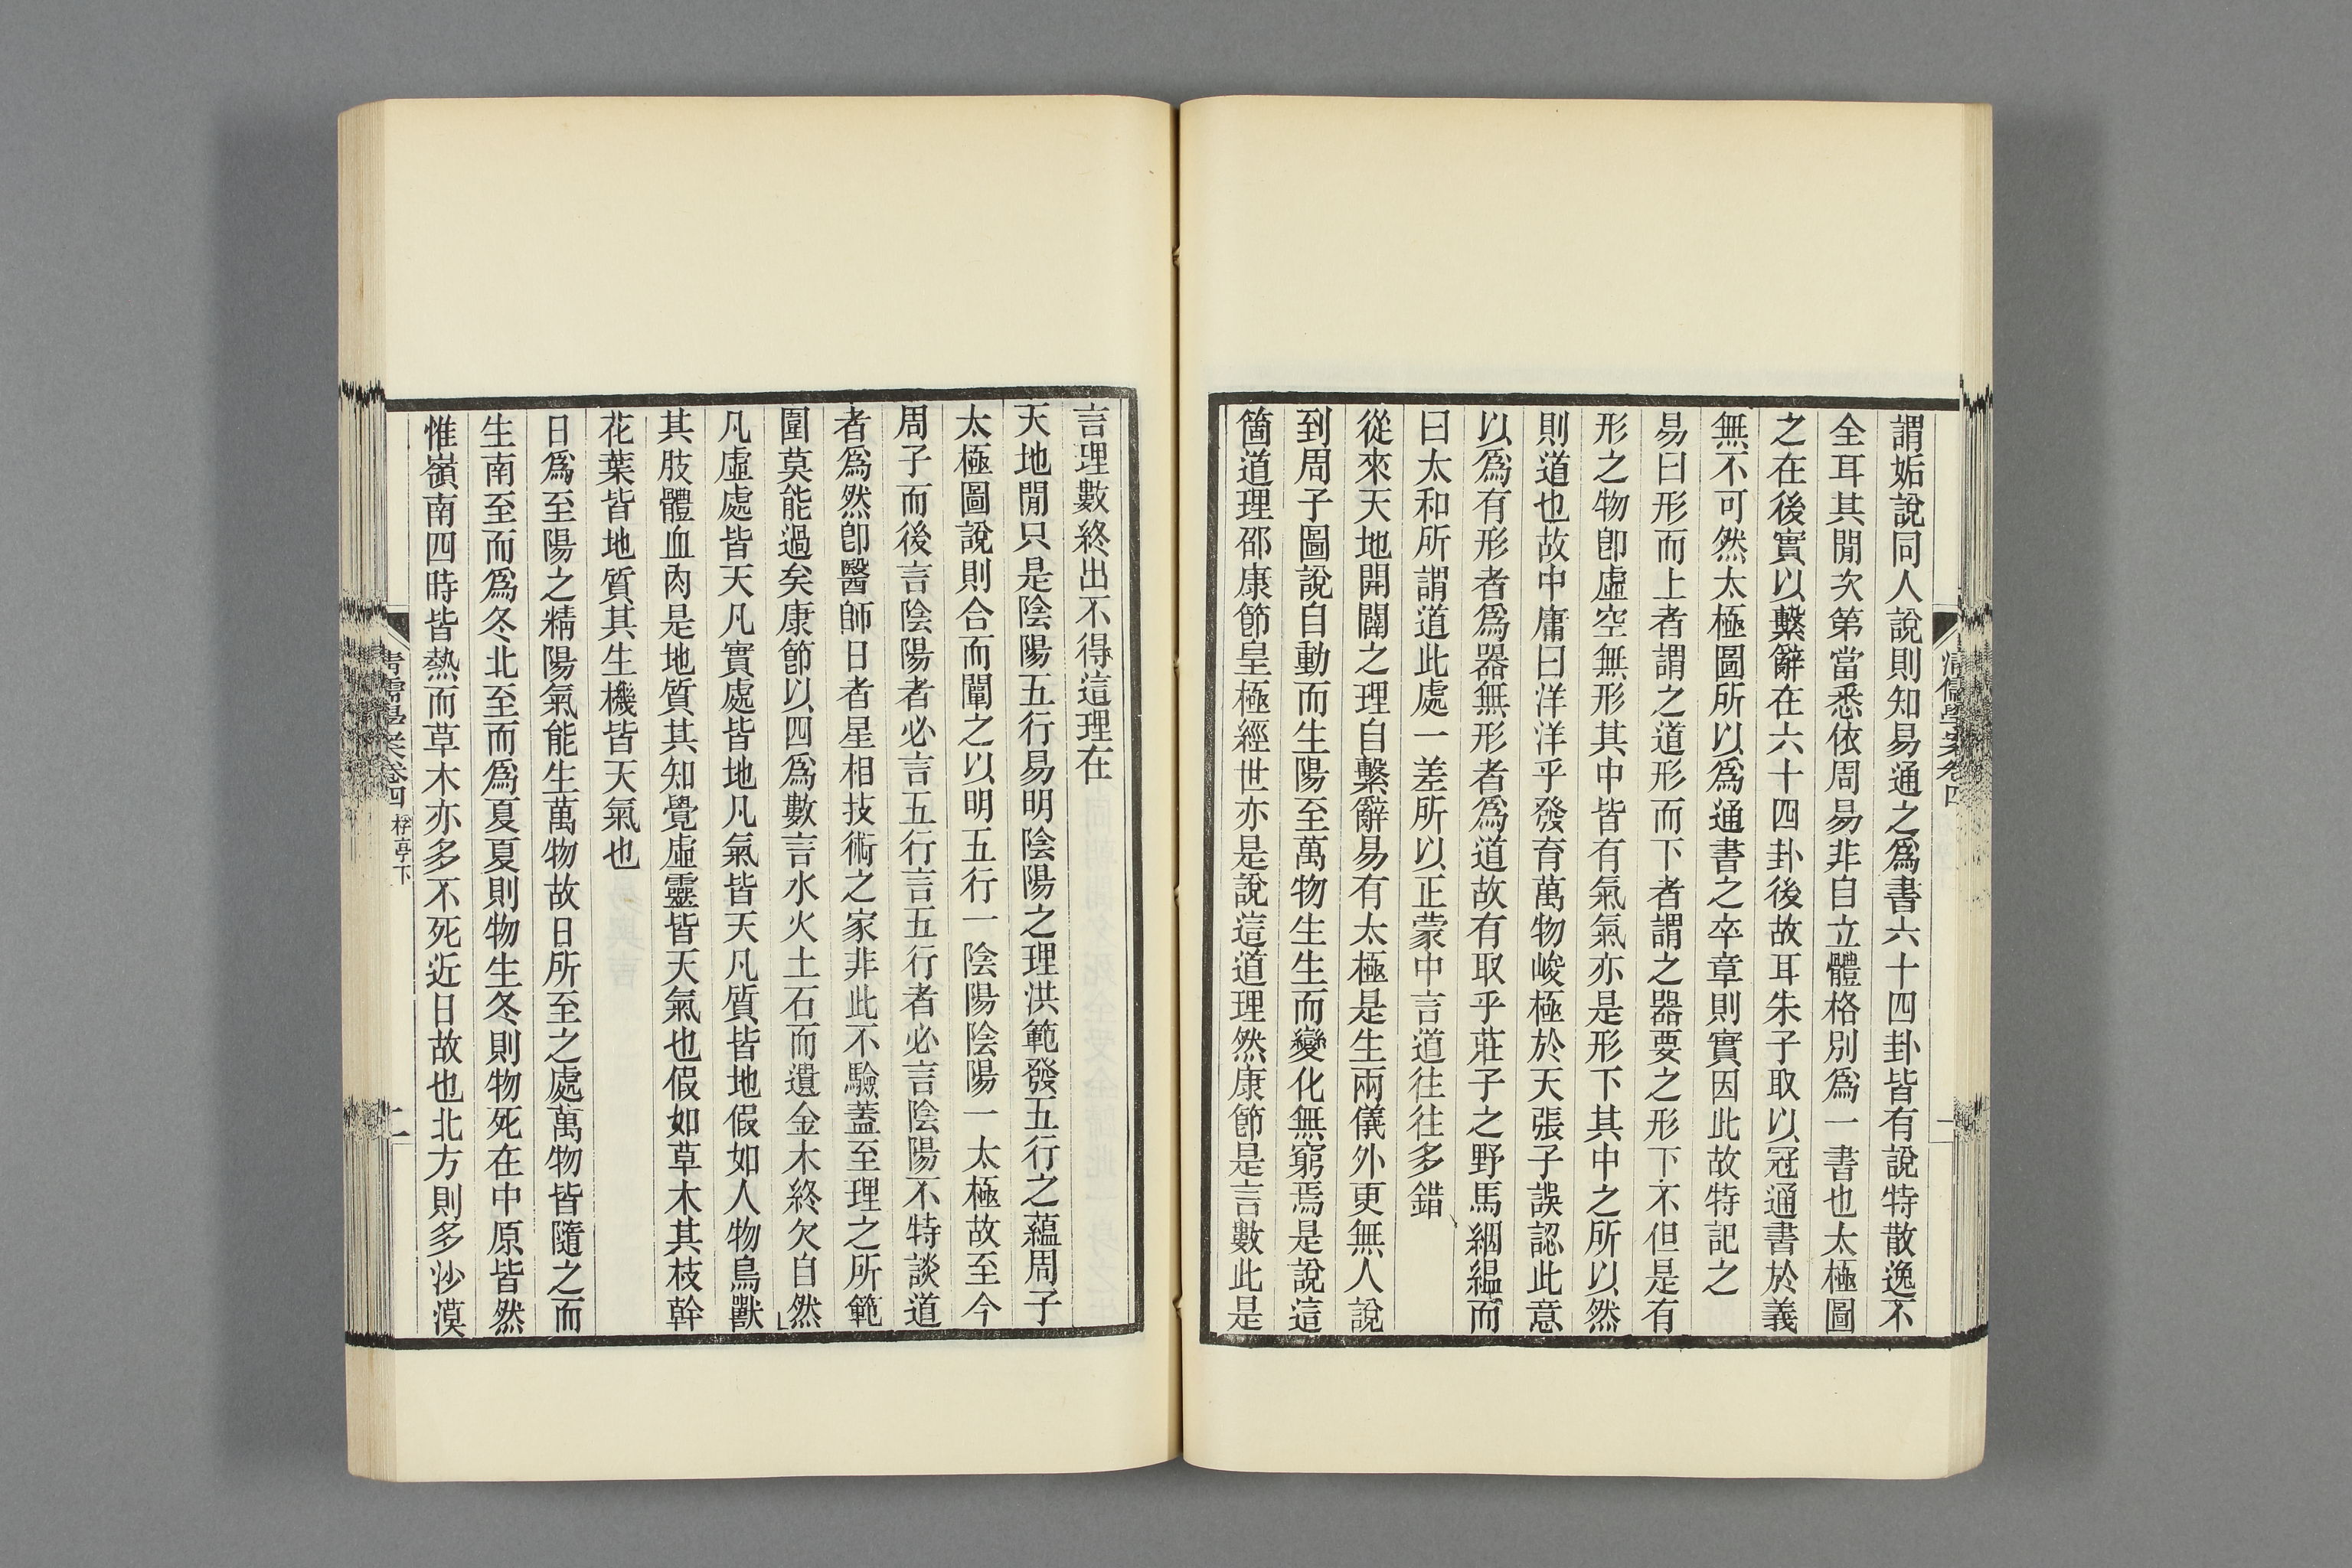 謂姤說同人說則知易通之爲書六十四卦皆有說特散逸不
全耳其閒次第當悉依周易非自立體格別爲一書也太極圖
之在後實以繫辭在六十四卦後故耳朱子取以冠通書於義
無不可然太極圖所以爲通書之卒章則實因此故特記之
易曰形而上者謂之道形而下者謂之器要之形下不但是有
形之物卽虛空無形其中皆有氣氣亦是形下其中之所以然
則道也故中庸曰洋洋乎發育萬物峻極於天張子誤認此意
以爲有形者爲器無形者爲道故有取乎莊子之野馬絪縕而
曰太和所謂道此處一差所以正蒙中言道往往多錯
從來天地開闢之理自繫辭易有太極是生兩儀外更無人說
到周子圖說自動而生陽至萬物生生而變化無窮焉是說這
箇道理邵康節皇極經世亦是說這道理然康節是言數此是
清儒學案卷四
一
言理數終出不得這理在
天地閒只是陰陽五行易明陰陽之理洪範發五行之蘊周子
太極圖說則合而闡之以明五行一陰陽陰陽一太極故至今
周子而後言陰陽者必言五行言五行者必言陰陽不特談道
者爲然卽醫師日者星相技術之家非此不驗蓋至理之所範
圍莫能過矣康節以四爲數言水火土石而遺金木終欠自然
凡虛處皆天凡實處皆地凡氣皆天凡質皆地假如人物鳥獸
其肢體血肉是地質其知覺虛靈皆天氣也假如草木其枝幹
花葉皆地質其生機皆天氣也
日爲至陽之精陽氣能生萬物故日所至之處萬物皆隨之而
生南至而爲冬北至而爲夏夏則物生冬則物死在中原皆然
惟嶺南四時皆熱而草木亦多不死近日故也北方則多沙漠
清儒學案卷四 桴亭下
二